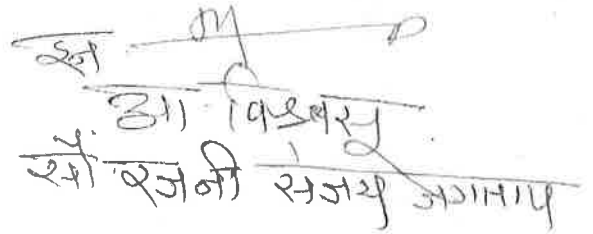 आ. विश्वासू
सौ. रजनी संजय जगताप